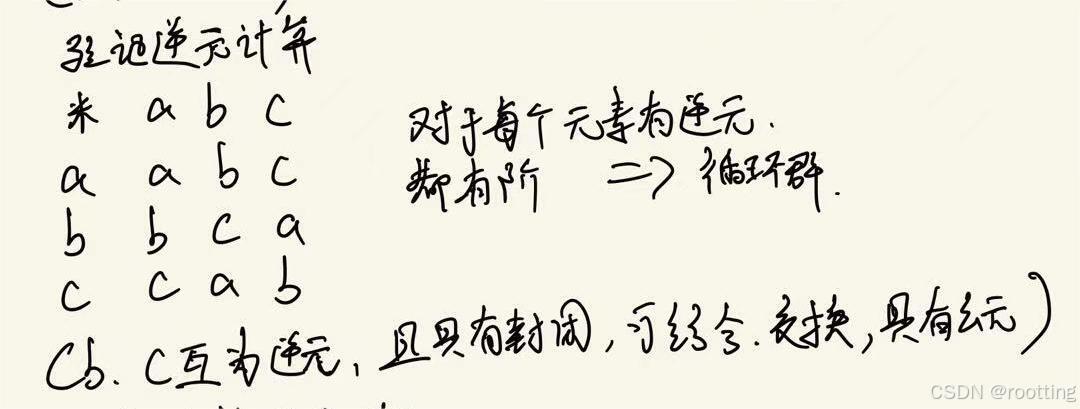 验证逆元计算
* a b c
a a b c
b b c a
c c a b
对于每个元素有逆元.
都有阶 => 循环群.
(b. c互为逆元, 且具有封闭, 可结合.交换, 具有幺元)
CSDN @rootting